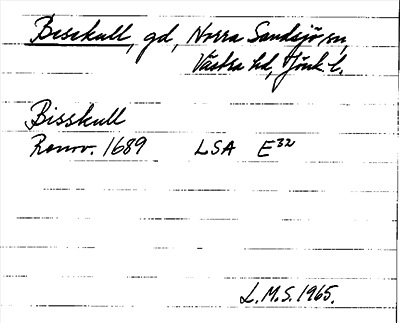 Bisskull, gd, Norra Sandsjö sn,
Västra hd, Jönk l.
Bisskull
Ranno. 1689 LSA E32
L.M.S. 1965.